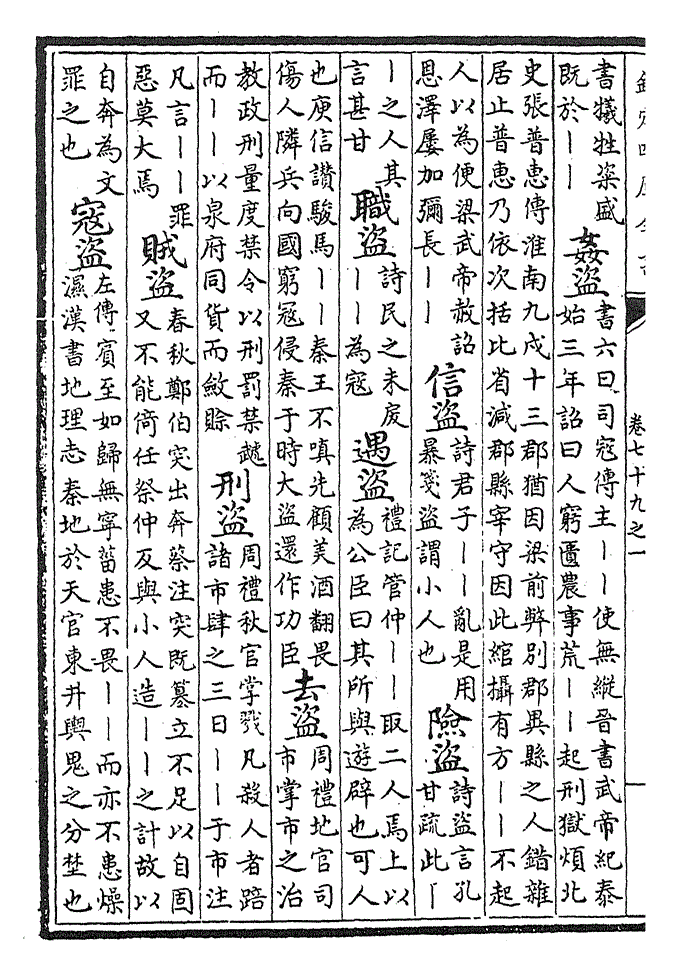 欽定四庫全書
卷七十九之一
書犧牲粢盛
既於〡〡
姦盜
書六曰司寇傳主〡〡使無縱晉書武帝紀泰
始三年詔曰人窮匱農事荒〡〡起刑獄煩北
史張普惠傳淮南九戍十三郡猶因梁前弊別郡異縣之人錯雜
居止普惠乃依次括比省減郡縣宰守因此綰攝有方〡〡不起
人以為便梁武帝赦詔
恩澤屢加彌長〡〡
信盜
詩君子〡〡亂是用
暴箋盜謂小人也
險盜
詩盜言孔
甘疏此〡
〡之人其
言甚甘
職盜
詩民之未戾
〡〡為寇
遇盜
禮記管仲〡〡取二人焉上以
為公臣曰其所與遊辟也可人
也庾信讃駿馬〡〡秦王不嗔先顧美酒翻畏
傷人隣兵向國窮寇侵秦于時大盜還作功臣
去盜
周禮地官司
市掌市之治
教政刑量度禁令以刑罰禁虣
而〡〡以泉府同貨而斂賒
刑盜
周禮秋官掌戮凡殺人者踣
諸市肆之三日〡〡于市注
凡言〡〡罪
惡莫大焉
賊盜
春秋鄭伯突出奔蔡注突既簒立不足以自固
又不能倚任祭仲反與小人造〡〡之計故以
自奔為文
罪之也
寇盜
左傳賔至如歸無寧菑患不畏〡〡而亦不患燥
濕漢書地理志秦地於天官東井輿鬼之分埜也